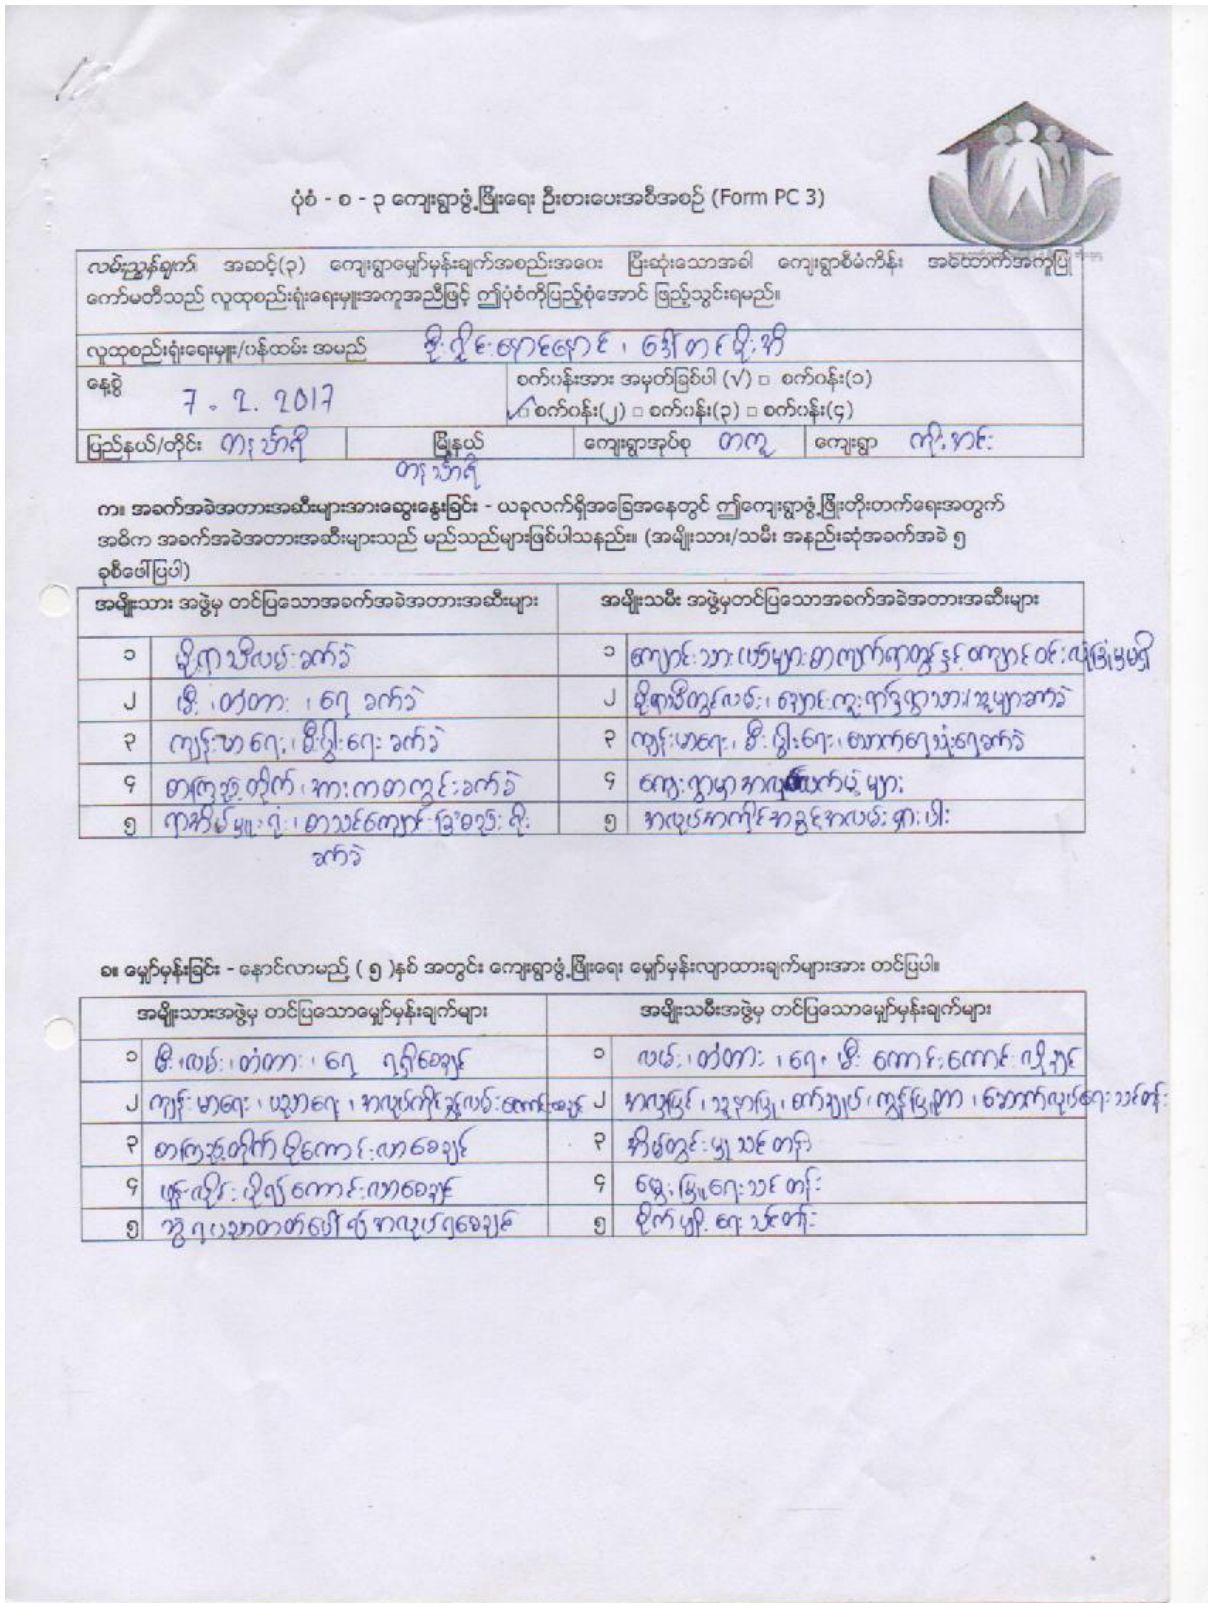 ပုံစံ - စ - ၃ ကျေးရွာဖွံ့ဖြိုးရေး ဦးစားပေးအစီအစဉ် (Form PC 3)
လမ်းညွှန်ချက်၊ အဆင့်(၃) ကျေးရွာမျှော်မှန်းချက်အစည်းအဝေး ပြီးဆုံးသောအခါ ကျေးရွာစီမံကိန်း အထောက်အကူပြု
ကော်မတီသည် လူထုစည်းရုံးရေးမှူးအကူအညီဖြင့် ဤပုံစံကိုပြည့်စုံအောင် ဖြည့်သွင်းရမည်။
လူထုစည်းရုံးရေးမှူး/ဝန်ထမ်း အမည် စိုးလှိုင်းနောင်နောင် ၊ ဒေါ်တင်မိုးအိ
နေ့စွဲ 7 . 2 . 2017 စက်ဝန်းအား အမှတ်ခြစ်ပါ (√) □ စက်ဝန်း(၁)
□ စက်ဝန်း(၂) □ စက်ဝန်း(၃) □ စက်ဝန်း(၄)
ပြည်နယ်/တိုင်း တနင်္သာရီ မြို့နယ် တနင်္သာရီ ကျေးရွာအုပ်စု တကူ ကျေးရွာ
က။ အခက်အခဲအတားအဆီးများအားဆွေးနွေးခြင်း - ယခုလက်ရှိအခြေအနေတွင် ဤကျေးရွာဖွံ့ဖြိုးတိုးတက်ရေးအတွက်
အဓိက အခက်အခဲအတားအဆီးများသည် မည်သည်များဖြစ်ပါသနည်း။ (အမျိုးသား/သမီး အနည်းဆုံးအခက်အခဲ ၅
ခုစီဖေါ်ပြပါ)
အမျိုးသား အဖွဲ့မှ တင်ပြသောအခက်အခဲအတားအဆီးများ အမျိုးသမီး အဖွဲ့မှတင်ပြသောအခက်အခဲအတားအဆီးများ
၁ မိုးရာသီလမ်းခက်ခဲ ၁ ကျောင်းသား စာကျက်ရာတွင်နှင့် ကျောင်ဝင်းလုံခြုံမှုမရှိ
၂ မီး ၊ တံတား ၊ ရေ ခက်ခဲ ၂ မိုးရာသီတွင်လမ်း ၊ ချောင်းကူးရာ၌ ရွာသား/သူများခက်ခဲ
၃ ကျန်းမာရေး ၊ စီးပွါးရေး ခက်ခဲ ၃ ကျန်းမာရေး ၊ စီးပွါးရေး ၊ သောက်ရေသုံးရေခက်ခဲ
၄ စာကြည့်တိုက် ၊ အားကစားကွင်းခက်ခဲ ၄ ကျေးရွာမှာ အလုပ်လက်မဲ့များ
၅ ရာအိမ်မှူးရုံး ၊ စာသင်ကျောင်းခြံစည်းရိုး ၅ အလုပ်အကိုင်အခွင့်အလမ်းရှားပါး
ခက်ခဲ
ခ။ မျှော်မှန်းခြင်း - နောင်လာမည့် ( ၅ )နှစ် အတွင်း ကျေးရွာဖွံ့ဖြိုးရေး မျှော်မှန်းလျာထားချက်များအား တင်ပြပါ။
အမျိုးသားအဖွဲ့မှ တင်ပြသောမျှော်မှန်းချက်များ အမျိုးသမီးအဖွဲ့မှ တင်ပြသောမျှော်မှန်းချက်များ
၁ မီး ၊ လမ်း ၊ တံတား ၊ ရေ ရရှိစေချင် ၁ လမ်း ၊ တံတား ၊ ရေ ၊ မီး ကောင်းကောင်းလိုချင်
၂ ကျန်းမာရေး ၊ ပညာရေး ၊ အလုပ်ကိုင်ခွင့်လမ်းကောင်းစေချင် ၂ အလှပြင် ၊ သူနာပြု ၊ စက်ချုပ် ၊ ကွန်ပြူတာ ၊ ဆောက်လုပ်ရေးသင်တန်း
၃ စာကြည့်တိုက်ပိုကောင်းလာစေချင် ၃ အိမ်တွင်းမှု သင်တန်း
၄ ဖုန်းလိုင်းပို၍ကောင်းလာစေချင် ၄ မွေးမြူရေးသင်တန်း
၅ ဘွဲ့ရပညာတတ်ပေါ်၍အလုပ်ရစေချင် ၅ စိုက်ပျိုးရေးသင်တန်း